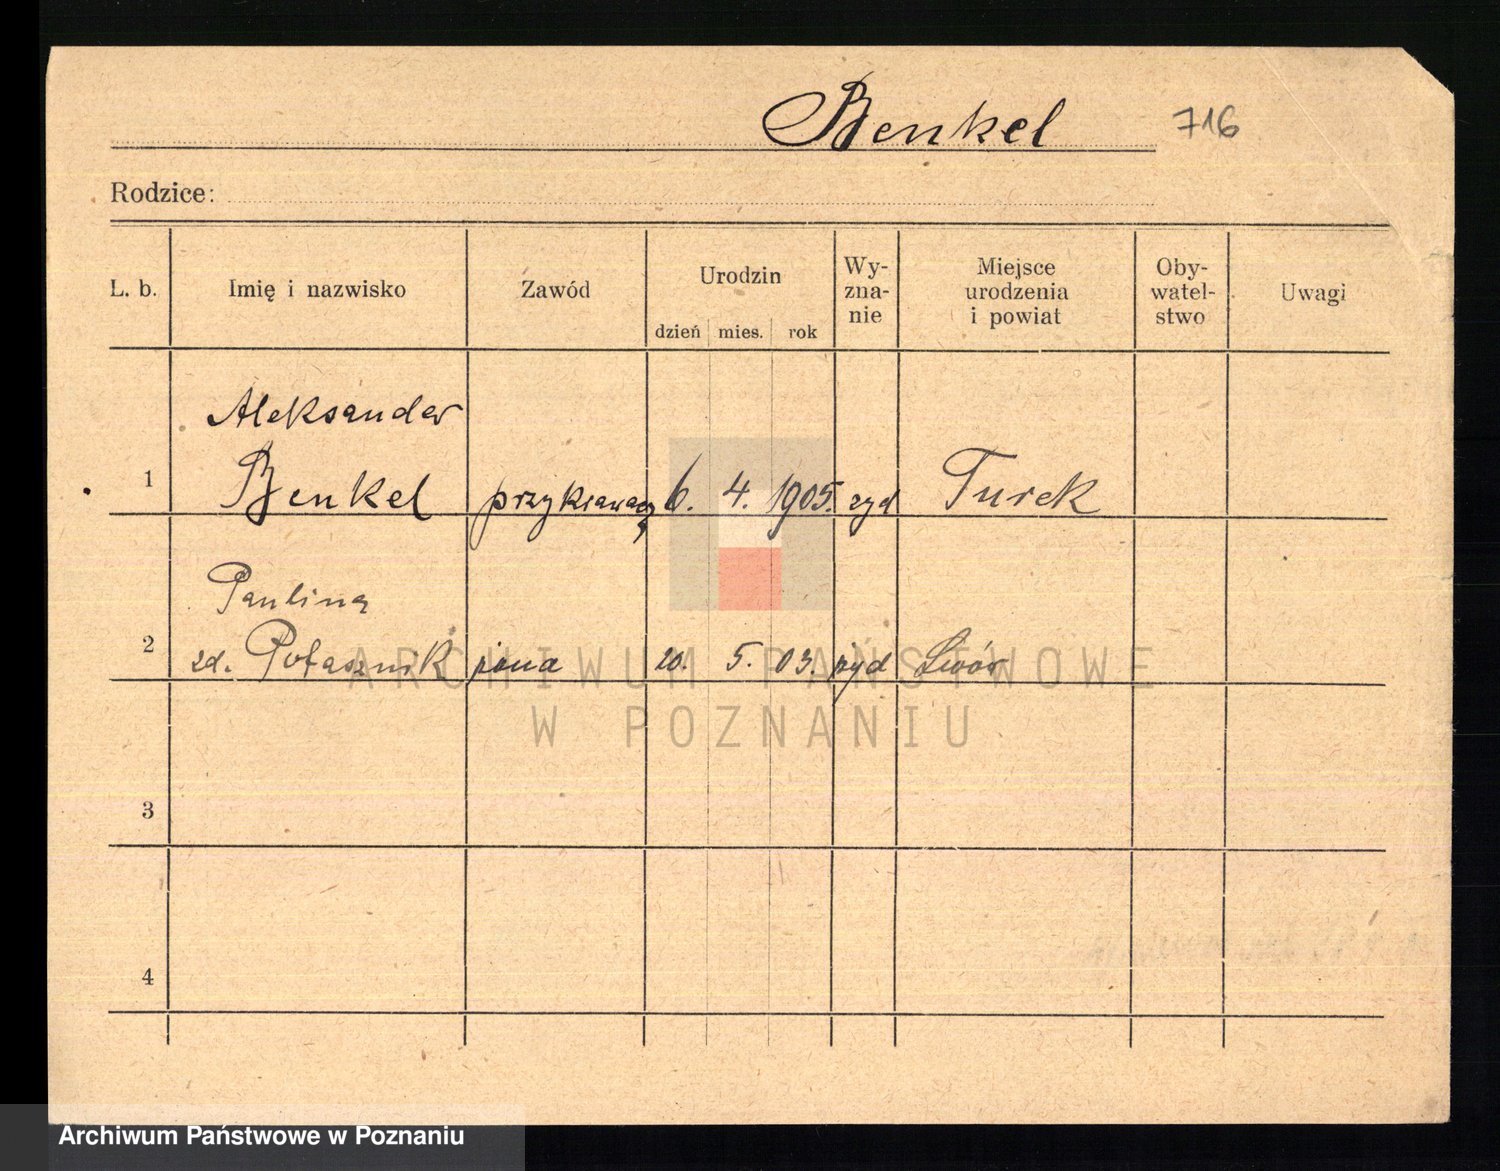 Benkel 716
Rodzice:
L. b. Imię i nazwisko Zawód Urodzin dzień mies. rok Wy-zna-nie Miejsce urodzenia i powiat Oby-watel-stwo Uwagi
Aleksander
1 Benkel 6. 4. 1905. żyd Turek
Paulina
2 zd. Potasznik żona 20. 5. 03. żyd Lwów
3
4
ARCHIWUM PAŃSTWOWE
W POZNANIU
Archiwum Państwowe w Poznaniu